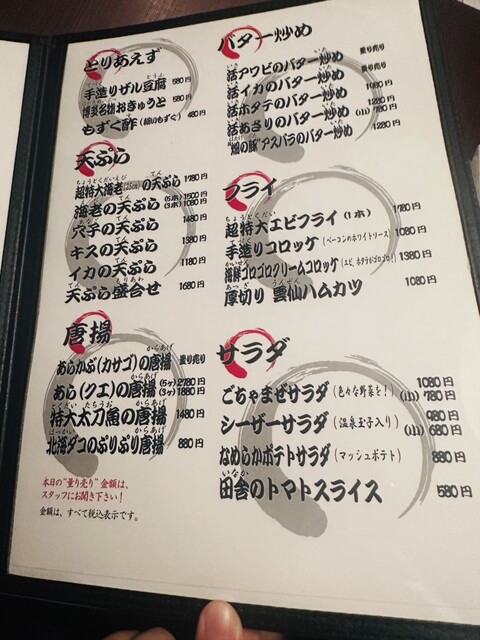 とりあえず
手造りザル豆腐 580円
博多名物おきゅうと 580円
もずく酢(細のもずく) 480円
天ぷら
超特大海老の天ぷら 1780円
海老の天ぷら (5本)1500円 (3本)1080円
穴子の天ぷら 1480円
キスの天ぷら 1380円
イカの天ぷら 1180円
天ぷら盛合せ 1680円
唐揚
あらかぶ(カサゴ)の唐揚 量り売り
あら(クエ)の唐揚 (5ヶ)2780円 (3ヶ)1880円
特大太刀魚の唐揚 1480円
北海ダコのぷりぷり唐揚 880円
本日の"量り売り"金額は、
スタッフにお聞き下さい!
金額は、すべて税込表示です。
バター炒め
活アワビのバター炒め 量り売り
活イカのバター炒め 量り売り
活ホタテのバター炒め 1080円
活あさりのバター炒め 1280円 (小)780円
"畑の豚"アスパラのバター炒め 1280円
フライ
超特大エビフライ(1本) 1780円
手造りコロッケ(ベーコンのホワイトソース) 1080円
海鮮ゴロゴロクリームコロッケ(エビ、ホタテがゴロゴロ!) 1380円
厚切り 雲仙ハムカツ 1080円
サラダ
ごちゃまぜサラダ(色々な野菜を!) 1080円 (小)780円
シーザーサラダ(温泉玉子入り) 980円 (小)680円
なめらかポテトサラダ(マッシュポテト) 880円
田舎のトマトスライス 580円